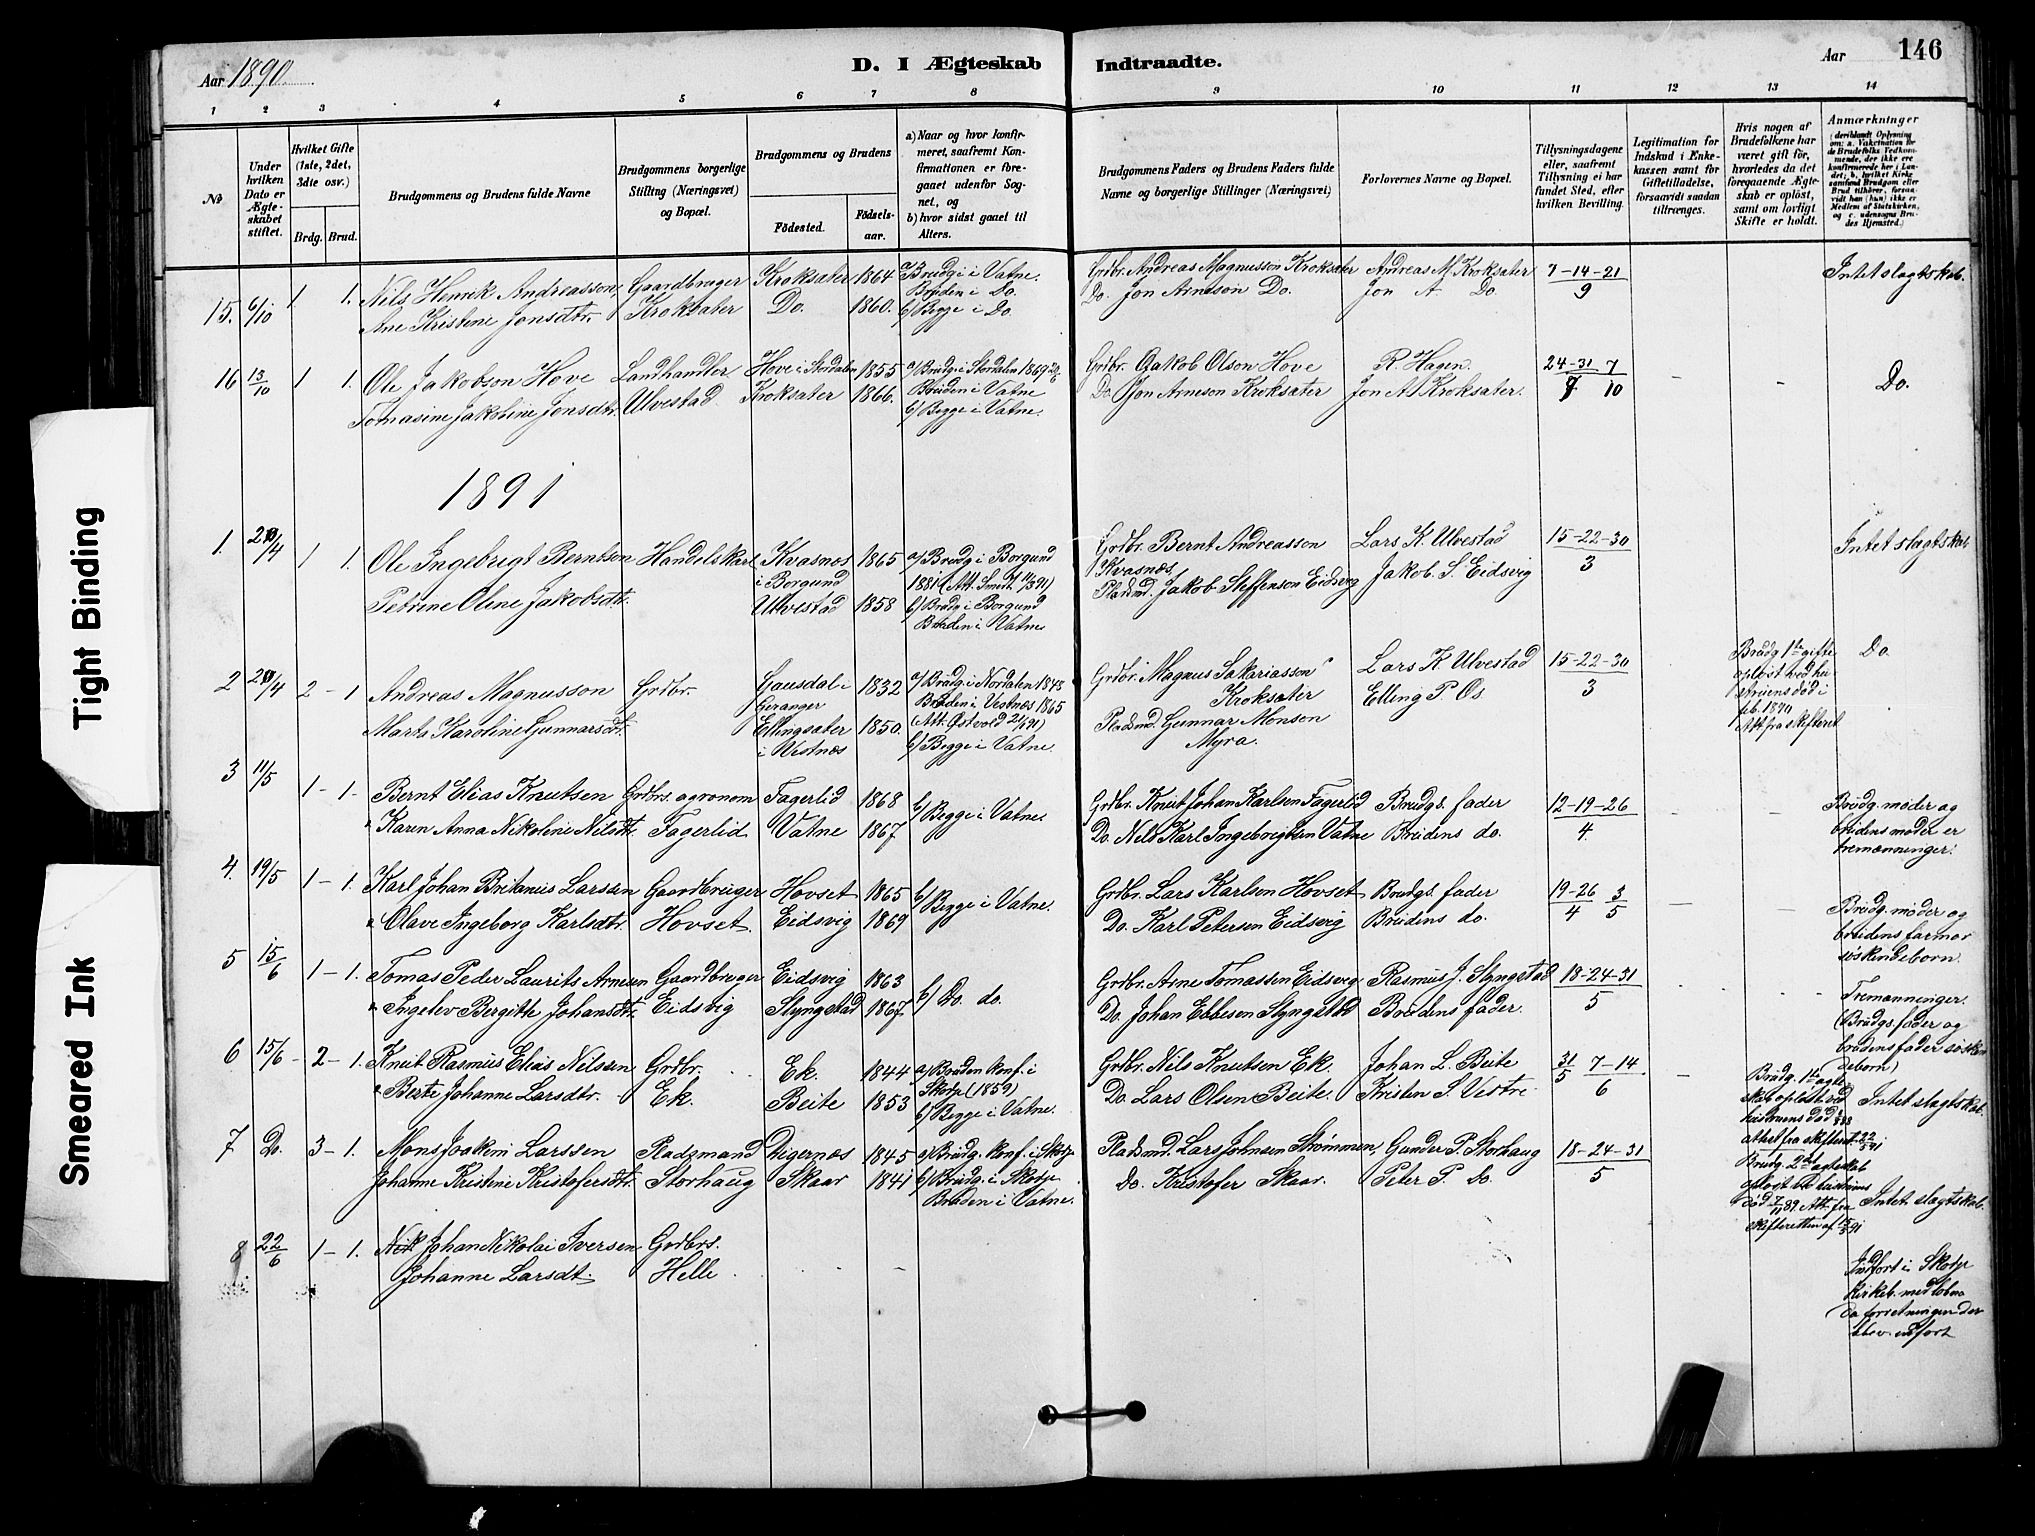 Tight Binding
Smeared Ink
Aar 1890.
D. I Ægteskab
Indtraadte.
Aar
146
1 2 3 4 5 6 7 8 9 10 11 12 13 14
No
Under hvilken Dato er Ægteskabet stiftet.
Hvilket Gifte (1ste, 2det, 3die osv.)
Brdg. Brud.
Brudgommens og Brudens fulde Navne
Brudgommens borgerlige Stilling (Næringsvei) og Bopæl.
Brudgommens og Brudens
Födested.
Födselsaar.
a) Naar og hvor konfirmeret, saafremt Konfirmationen er foregaaet udenfor Sognet, og
b) hvor sidst gaaet til Alters.
Brudgommens Faders og Brudens Faders fulde Navne og borgerlige Stillinger (Næringsvei)
Forlovernes Navne og Bopæl.
Tillysningsdagene eller, saafremt Tillysning ei har fundet Sted, efter hvilken Bevilling.
Legitimation for Indskud i Enkekassen samt for Giftetilladelse, forsaavidt saadan tiltrænges.
Hvis nogen af Brudefolkene har været gift för, hvorledes da det foregaaende Ægteskab er oplöst, samt om lovligt Skifte er holdt.
Anmærkninger
(deriblandt Oplysning om: a. Vakcination for de Brudefolks Vedkommende, der ikke ere konfirmerede her i Landet; b. hvilket Kirkesamfund Brudgom eller Brud tilhörer, forsaavidt han (hun) ikke er Medlem af Statskirken, og c. udensogns Brudes Hjemsted.)
15. 6/10 1 1. Nils Henrik Andreasson, Gaardbruger Kroksæter 1864 a/ Brudg i Vatne. Grdbr. Andreas Magnusson Kroksæter Andreas M. Kroksæter 7-14-21 Intet slagtskab.
Ane Kristine Jonsdtr. Kroksæter Do. 1860. Bruden i Do. b/ Begge i Do. Do. Jon Arneson Do. Jon A. Do. 9
16 13/10 1 1. Ole Jakobson Hove Landhandler Hove i Stordalen 1855 a/ Brudg i Stordalen 1869 Grdbr. Jakob Olson Hove R. Hagen. 24-31 7 - - Do.
Tomasine Jakobine Jonsdtr. Ulvestad Kroksæter 1866. Bruden i Vatne b/ Begge i Vatne. Do. Jon Arneson Kroksæter Jon A. Kroksæter. 10
1891
1. /4 1 1. Ole Ingebrigt Berntson Handelskarl Kvasnes i Borgund 1865 a/ Brudg i Borgund 1881 (Att. Smidt 11/3 91) Grdbr. Bernt Andreasson Kvasnæs, Lars K. Ulvestad 15-22-30 Intet slagtskab
Petrine Oline Jakobsdtr. Ulvestad 1858 b/ Brudg i Borgund Bruden i Vatne Pladsmd. Jakob Steffenson Eidsvig Jakob S. Eidsvig 3
2 /4 2 - 1 Andreas Magnusson Grdbr. Gausdal i Geiranger 1832 a/ Brudg. i Nordalen 1848 Bruden i Vestnæs 1865 Grdbr. Magnus Sakariasson Kroksæter Lars K. Ulvestad 15-22-30 Brudg 1ste gifte opløst ved hustruens død i feb. 1870 Att. fra skifteret Do.
Marta Karoline Gunnarsdt. Ellingsæter i Vestnæs 1850. (Att. Østvold 2/4 91) b/ Begge i Vatne. Pladsmd. Gunnar Monson Myra. Elling P. Os 3
3 11/5 1 - 1. Bernt Elias Knutsen Grdbrs. agronom Fagerlid 1868 b/ Begge i Vatne Grdbr. Knut Johan Karlsen Fagerlid Brudgs. fader 12-19-26 Brudg. moder og brudens moder er tremænninger.
Karen Anna Nikoline Nilsdt. Fagerlid Vatne 1867 Do. Nils Karl Ingebrigtsen Vatne Brudens do. 4.
4. 19/5 1 - 1. Karl Johan Britanus Larsen Gaardbruger Hovset 1865 b/ Begge i Vatne. Grdbr. Lars Karlson Hovset Brudgs. fader 19-26 3 Brudg. moder og brudens farmor søskendeborn.
Olave Ingeborg Karlsdtr. Hovset. Eidsvig 1869 Do. Karl Petersen Eidsvig Brudens do. 4 5
5 15/6 1 - 1. Tomas Peder Laurits Arnesen Gaardbruger Eidsvig 1863 b/ Do. do. Grdbr. Arne Tomassen Eidsvig Rasmus J. Slyngstad 18-24-31 Tremænninger. (Brudgs. fader og brudens fader søskendeborn)
Ingelev Bergitte Johansdt. Eidsvig Slyngstad 1867 Do. Johan Ebbesen Slyngstad Brudens fader. 5
6 15/6 2 - 1. Knut Rasmus Elias Nilssen Grdbr. Ek. 1844 a/ Bruden konf. i Skotje (1859) Grdbr. Nils Knutsen Ek. Johan L. Beite 31/5 7-14 - Brudg. 1ste ægteskab opløst ved hustruens død attest fra skifteret. Intet slagtskab.
Berte Johanne Larsdtr. Ek. Beite 1853 b/ Begge i Vatne. Do. Lars Olsen Beite. Kristen S. Vestre 6
7 Do. 3 - 1. Mons Joakim Larssen Pladsmand Digernæs 1845 a/ Brudg. konf. i Skotje Pladsmd. Lars Johnsen Strømmen, Gunder P. Storhaug 18-24-31 Brudg. 2det ægteskab opløst v. hustruens død 7/11 89. Att. fra skifteretten af Intet slagtskab.
Johanne Kristine Kristofersdt. Storhaug Skaar 1841 b/ Brudg. i Skotje Bruden i Vatne. Do. Kristofer Skaar. Peter P. Do. 5
8 22/6 1 - 1. Johan Nikolai Iversen Grdbrs.
Johanne Larsdt. Helle
Indfort i Skotje
Kirkeb. med
Da forretningen der
blev udfort